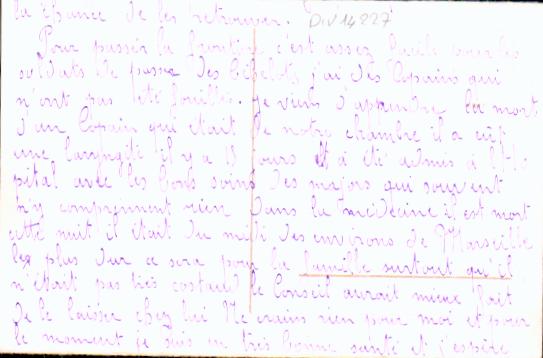 la chance de les retrouver. DIV 14227
Pour passer la frontière c'est assez facile pour les
soldats de passer des bibelots, j'ai des Copains qui
n'ont pas été fouillés. Je viens d'apprendre la mort
d'un Copain qui était de notre chambre il a eut
une laryngite il y a 15 jours et a été admis à l'Hô-
pital avec les bons soins des majors qui souvent
n'y comprennent rien dans la médecine il est mort
cette nuit il était du midi des environs de Marseille
le plus dur ce sera pour la famille surtout qu'il
n'était pas très costaud le Conseil aurait mieux fait
de le laisser chez lui Ne crains rien pour moi et pour
le moment je suis en très bonne santé et j'espère